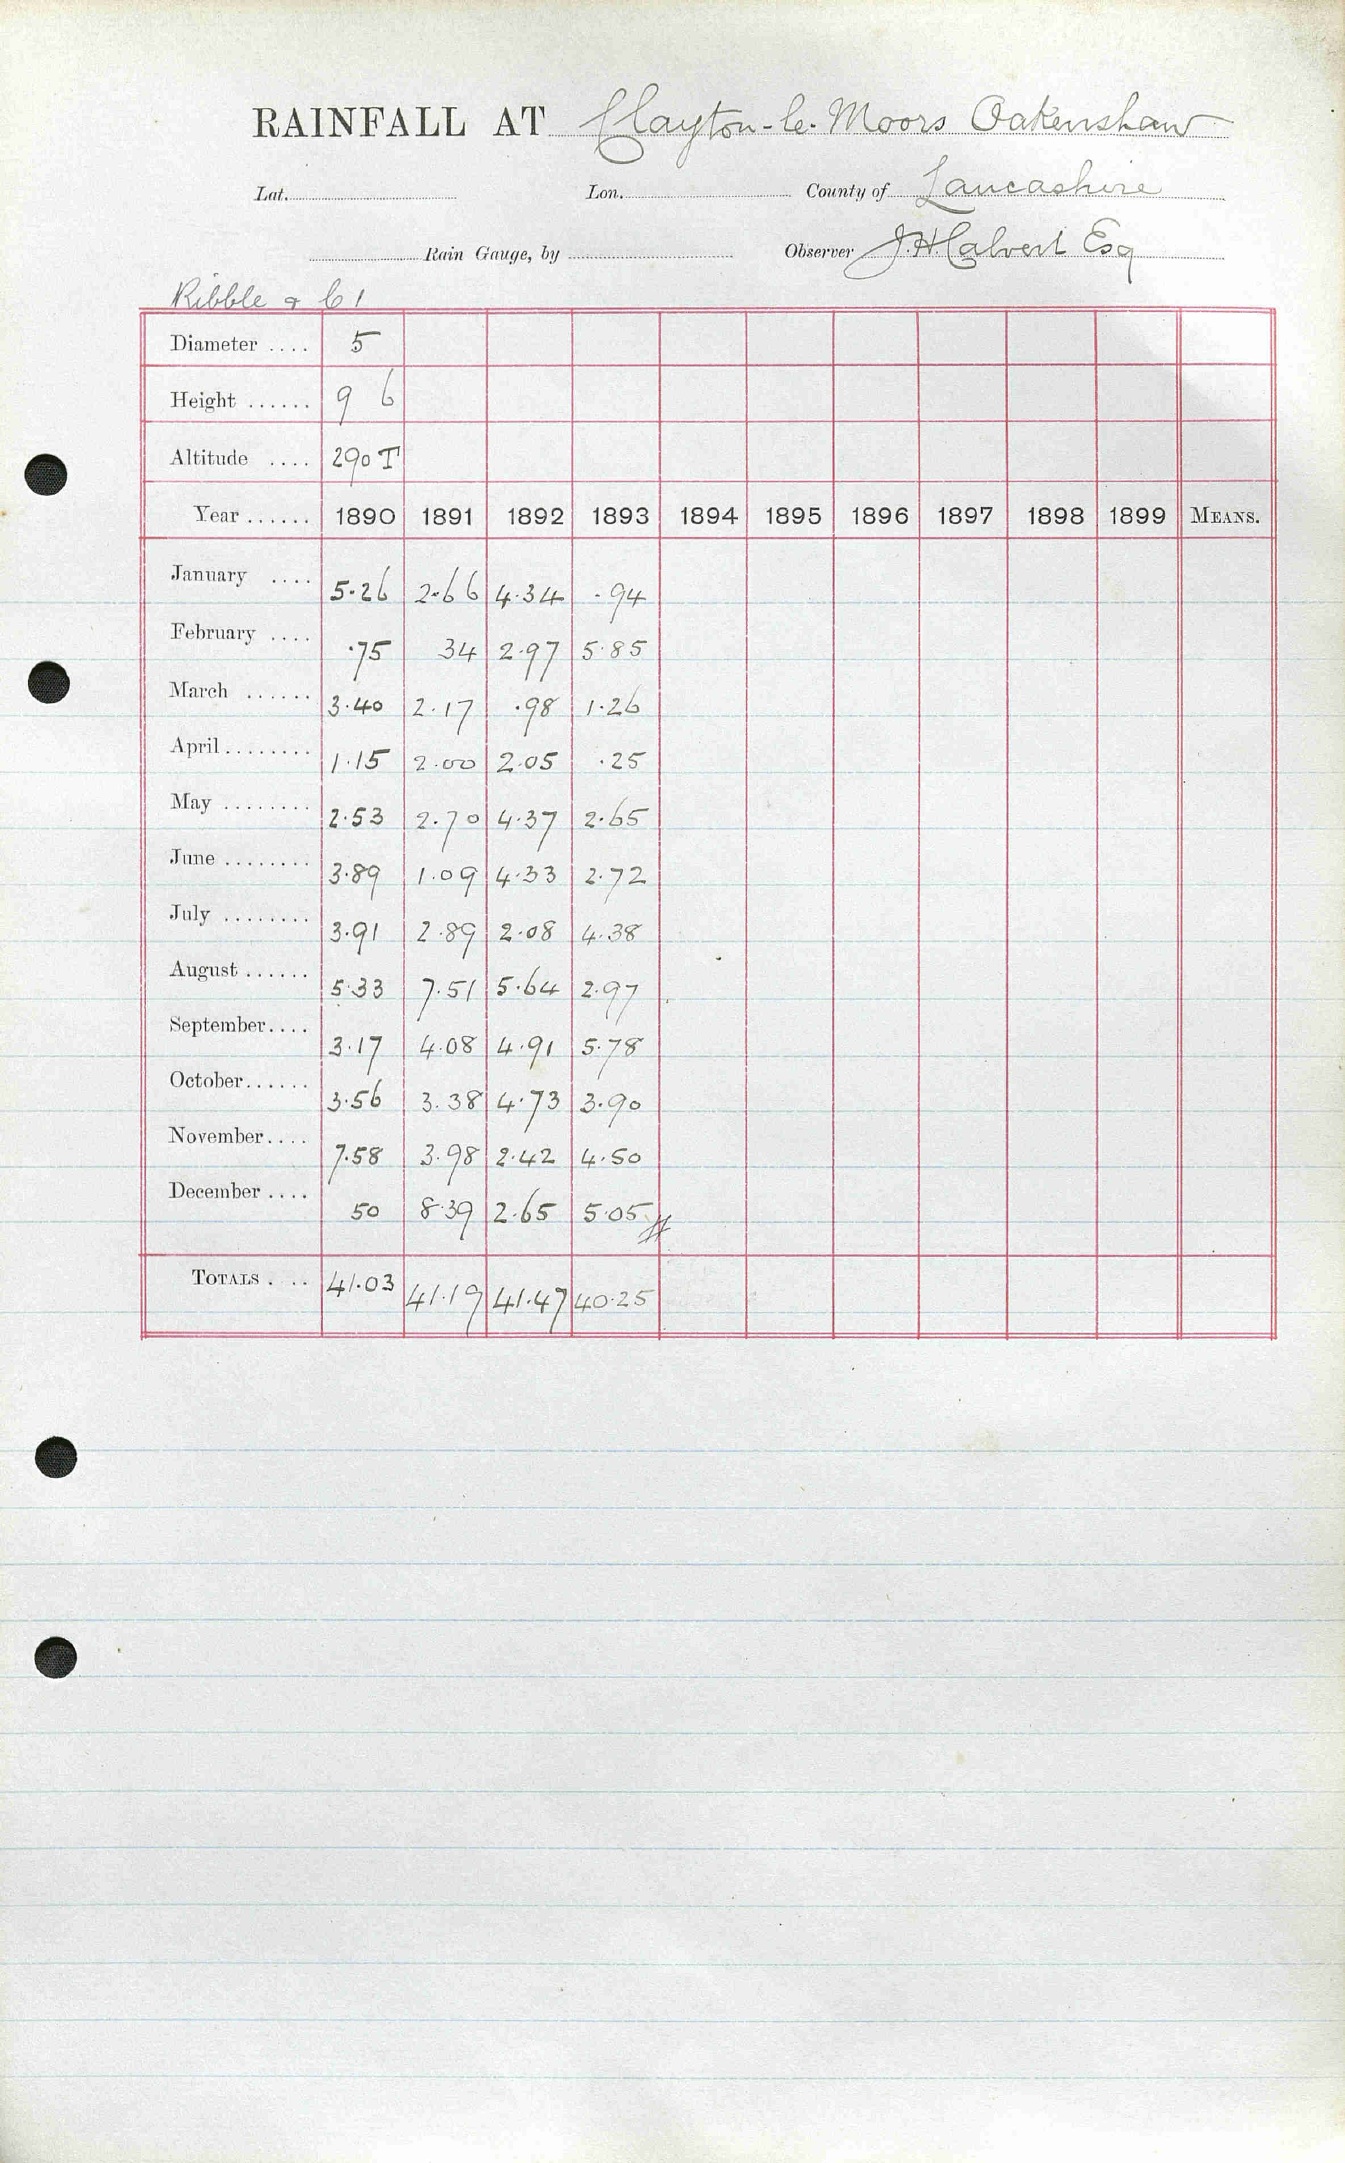 RAINFALL AT Clayton-le-Moors Oakenshaw
Lat. Lon. County of Lancashire
Rain Gauge, by Observer J.H. Calvert Esq
Ribble &
Diameter .... 5
Height ...... 9 6
Altitude .... 290 T
Year ...... 1890 1891 1892 1893 1894 1895 1896 1897 1898 1899 MEANS.
January .... 5.26 2.66 4.34 .94
February .... .75 34 2.97 5.85
March ...... 3.40 2.17 .98 1.26
April ........ 1.15 2.00 2.05 .25
May ........ 2.53 2.70 4.37 2.65
June ........ 3.89 1.09 4.33 2.72
July ........ 3.91 2.89 2.08 4.38
August ...... 5.33 7.51 5.64 2.97
September.... 3.17 4.08 4.91 5.78
October...... 3.56 3.38 4.73 3.90
November.... 7.58 3.98 2.42 4.50
December .... 50 8.39 2.65 5.05 #
TOTALS . .. 41.03 41.19 41.47 40.25